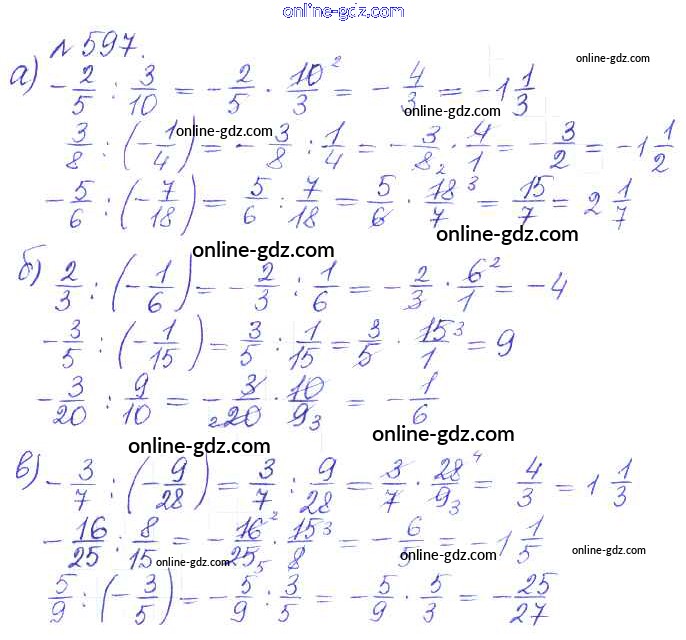 online-gdz.com
online-gdz.com
№ 597.
online-gdz.com
а) -2/5 : 3/10 = -2/5 · 10/3 ² = -4/3 = -1 1/3
online-gdz.com
online-gdz.com
3/8 : (-1/4) = -3/8 : 1/4 = -3/8 ₂ · 4/1 = -3/2 = -1 1/2
-5/6 : (-7/18) = 5/6 : 7/18 = 5/6 · 18/7 ³ = 15/7 = 2 1/7
online-gdz.com
online-gdz.com
б) 2/3 : (-1/6) = -2/3 : 1/6 = -2/3 · 6/1 ² = -4
-3/5 : (-1/15) = 3/5 : 1/15 = 3/5 · 15/1 ³ = 9
-3/20 : 9/10 = -3/₂20 · 10/9 ₃ = -1/6
online-gdz.com
online-gdz.com
в) -3/7 : (-9/28) = 3/7 : 9/28 = 3/7 · 28/9 ⁴ ₃ = 4/3 = 1 1/3
-16/25 : 8/15 = -16/25 ² ₅ · 15/8 ³ = -6/5 = -1 1/5
online-gdz.com
online-gdz.com
online-gdz.com
5/9 : (-3/5) = -5/9 : 3/5 = -5/9 · 5/3 = -25/27